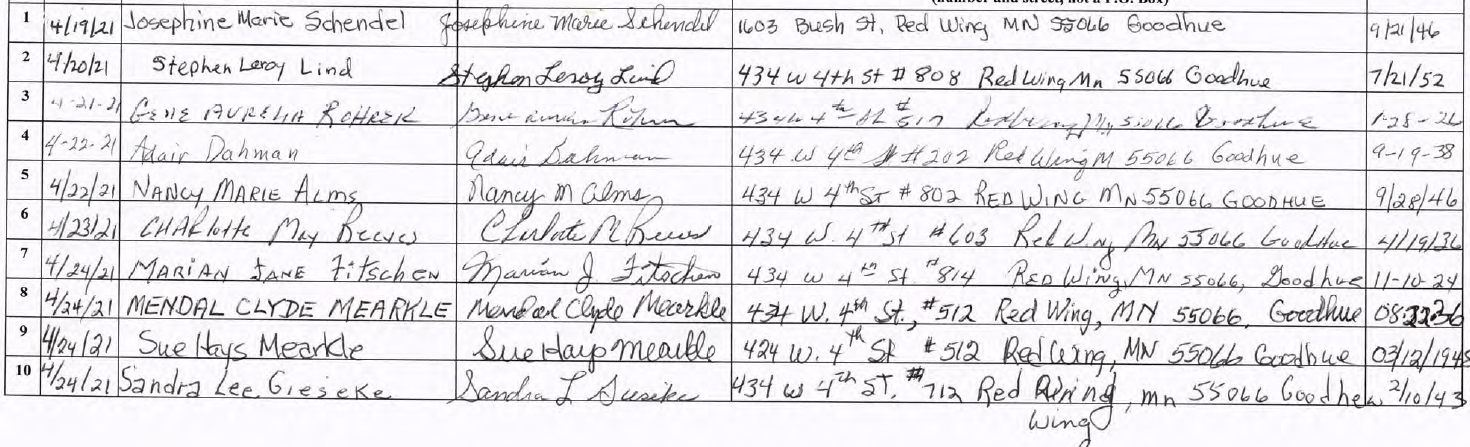 (number and street, not a P.O. Box)
1 4/19/21 Josephine Marie Schendel Josephine Marie Schendel 1603 Bush St, Red Wing MN 55066 Goodhue 9/21/46
2 4/20/21 Stephen Leroy Lind Stephen Leroy Lind 434 W 4th St # 808 Red Wing Mn 55066 Goodhue 7/21/52
3 4-21-21 GENE AURELIA ROHRER Gene 434 4th St # 517 55066 Goodhue 1-28-26
4 4-22-21 Adair Dahman Adair Dahman 434 W 4th St #202 Red Wing M 55066 Goodhue 9-19-38
5 4/22/21 NANCY MARIE Alms Nancy M Alms 434 W 4th St # 802 RED WING MN 55066 GOODHUE 9/28/46
6 4/23/21 CHARlotte May Reeves Charlotte M Reeves 434 W. 4th St #603 Red Wing MN 55066 Goodhue 4/19/36
7 4/24/21 MARIAN JANE FitSCHEN Marian J Fitschen 434 W 4th St. # 814 RED WING, MN 55066, Goodhue 11-10-24
8 4/24/21 MENDAL CLYDE MEARKLE Mendal Clyde Mearkle 434 W. 4th St., #512 Red Wing, MN 55066, Goodhue 08
9 4/24/21 Sue Hays Mearkle Sue Hays Mearkle 424 W. 4th St #512 Red Wing, MN 55066 Goodhue 03/12/1945
10 4/24/21 Sandra Lee Gieseke Sandra L Gieseke 434 W 4th ST. # 712 Red , mn 55066 Goodhew 2/10/43
Wing